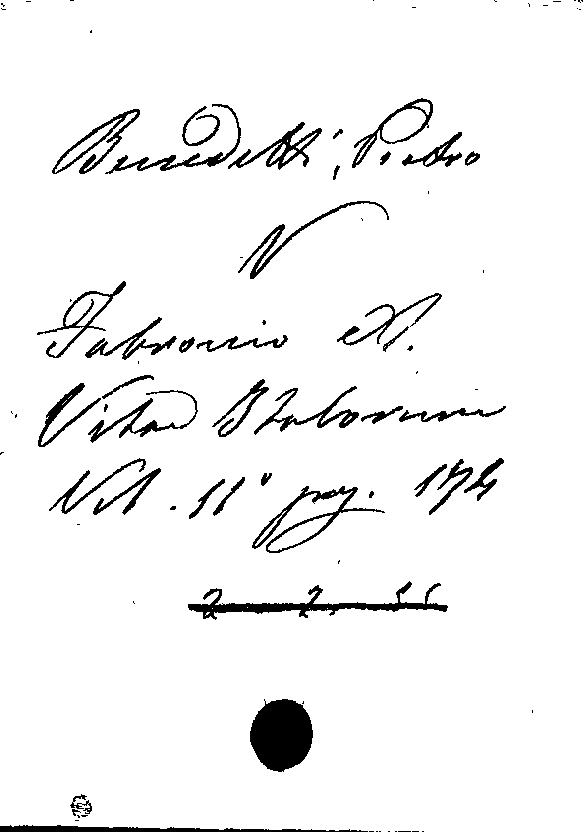 Benedetti, Pietro
V
Fabronio A.
Vitae Italorum
Vol. 11° pag. 174
2 2. 55